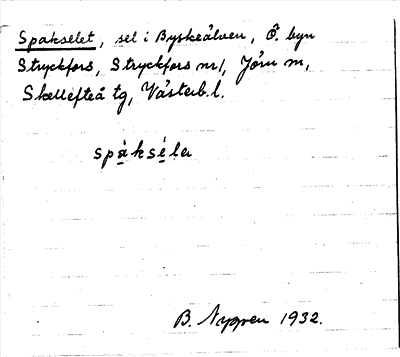 Spakselet, sel i Byskeälven, Ö. byn
Stryckfors, Stryckfors nr 1, Jörn m,
Skellefteå tg, Västerb.l.
spàksèlə
B. Nygren 1932.